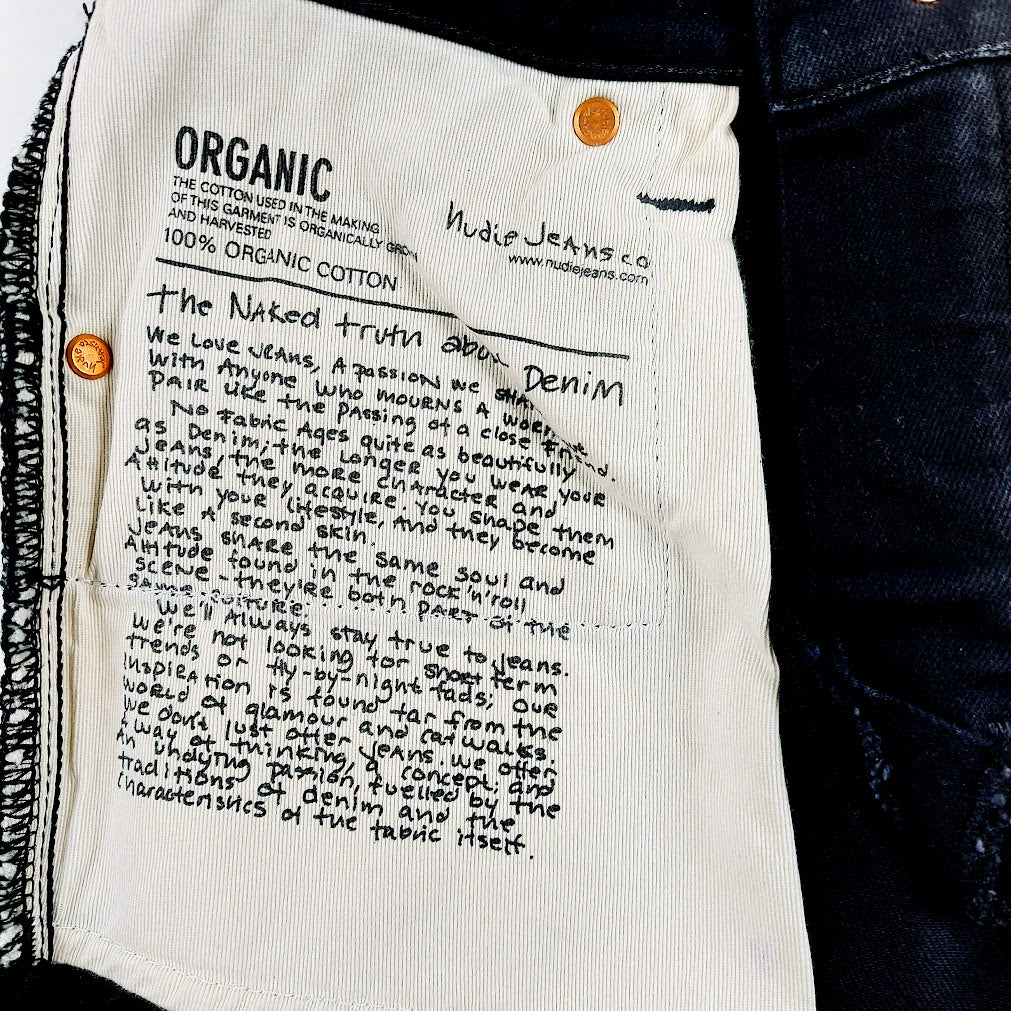 ORGANIC
THE COTTON USED IN THE MAKING
OF THIS GARMENT IS ORGANICALLY GROWN
AND HARVESTED
100% ORGANIC COTTON
Nudie Jeans co
www.nudiejeans.com
The Naked truth about Denim
We Love Jeans, A passion we share
With Anyone who mourns A worn out
PAIR Like the PAssing of a close friend.
No Fabric Ages quite as beautifully
as Denim; the Longer you weAR your
Jeans, the more chAracter and
Attitude they acquire. You shape them
With your Lifestyle, And they become
Like A second skin.
JeAns shARe the same soul and
Attitude found in the rock'n'roll
scene - they're both pARt of the
same culture.
We'll Always stay true to Jeans.
We're not looking for short term
trends or fly-by-night fads; our
inspiRAtion is found far from the
world of glamour and catwalks.
We don't just offer Jeans. We offer
A way of thinking, a concept; and
An undying passion, fuelled by the
traditions of denim and the
characteristics of the fabric itself.